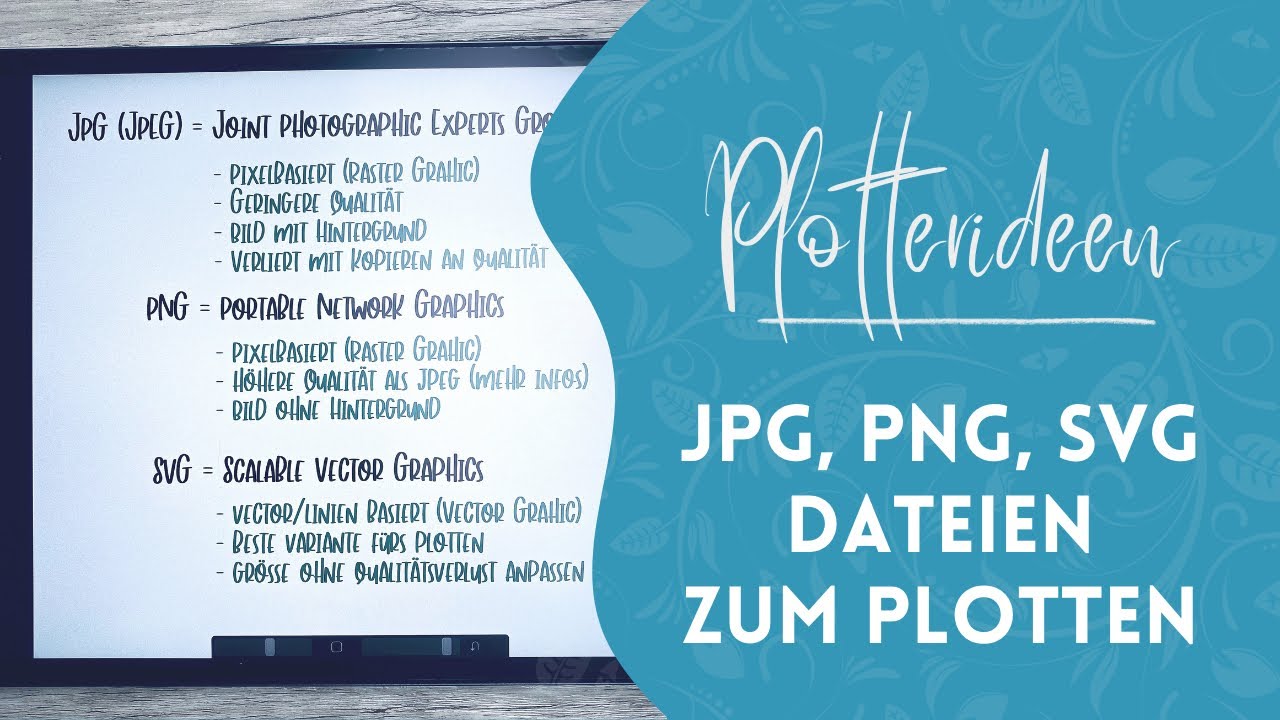 JPG (JPEG) = Joint Photographic Experts
- Pixelbasiert (Raster Grahic)
- Geringere Qualität
- Bild mit Hintergrund
- Verliert mit Kopieren an Qualität
PNG = Portable Network Graphics
- Pixelbasiert (Raster Grahic)
- Höhere Qualität als JPEG (mehr Infos)
- Bild ohne Hintergrund
SVG = Scalable Vector Graphics
- Vector/Linien Basiert (Vector Grahic)
- Beste Variante fürs Plotten
- Grösse ohne Qualitätsverlust anpassen
Plotterideen
JPG, PNG, SVG
DATEIEN
ZUM PLOTTEN